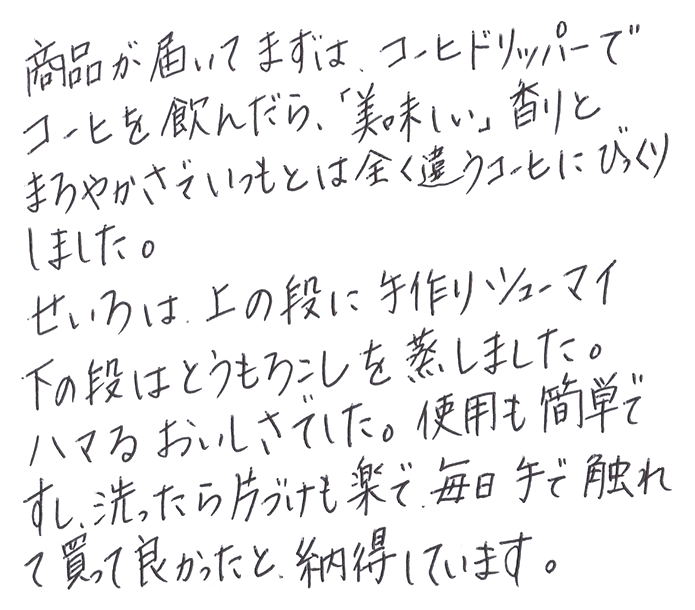 商品が届いてまずは、コーヒドリッパーで
コーヒを飲んだら、「美味しい」香りと
まろやかさでいつもとは全く違うコーヒにびっくり
しました。
せいろは、上の段に手作りシューマイ
下の段はとうもろこしを蒸しました。
ハマるおいしさでした。使用も簡単で
すし、洗ったら片づけも楽で、毎日手で触れ
て買って良かったと、納得しています。